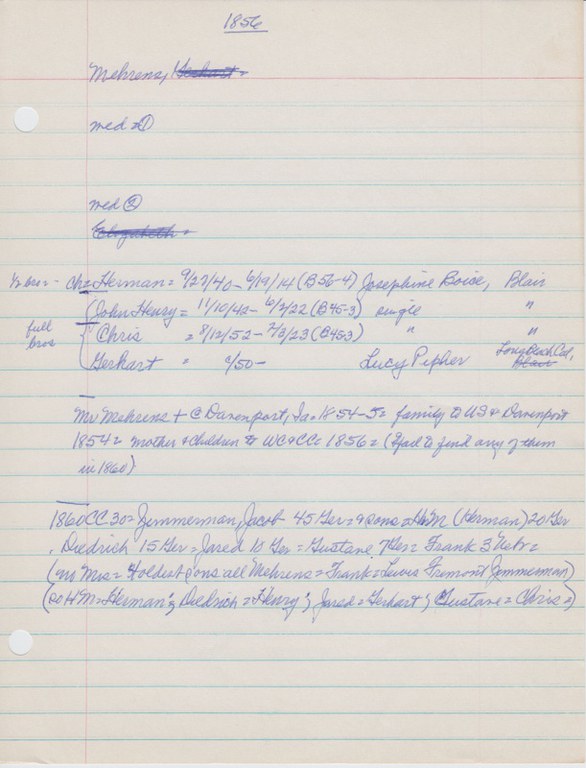 1856
Mehrens, Gerhart =
med = ①
med ②
Elizabeth =
½ bro = ch = Herman = 9/27/40 - 6/19/14 (B56-4) Josephine Boice, Blair
John Henry = 11/10/42 - 6/3/22 (B45-3) single "
full bros
Chris = 8/12/52 - 2/3/23 (B45-3) " "
Gerhart = c/50 - Lucy Pipher Long Beach Cal, Blair
Mr Mehrens + @ Davenport, Ia = 1854-5 = family to US & Davenport
1854 = mother & children to WC&CC = 1856 = (Hard to find any of them
in 1860)
1860CC30 = Zimmerman, Jacob 45 Ger = 9 sons = HM (Herman) 20 Ger
, Diedrich 15 Ger = Jared 10 Ger = Gustave 7 Ger = Frank 3 Nebr =
(no Mrs = 4 oldest sons all Mehrens = Frank = Lewis Fremont Zimmerman)
(so HM = Herman; Diedrich = Henry; Jared = Gerhart; Gustave = Chris =)